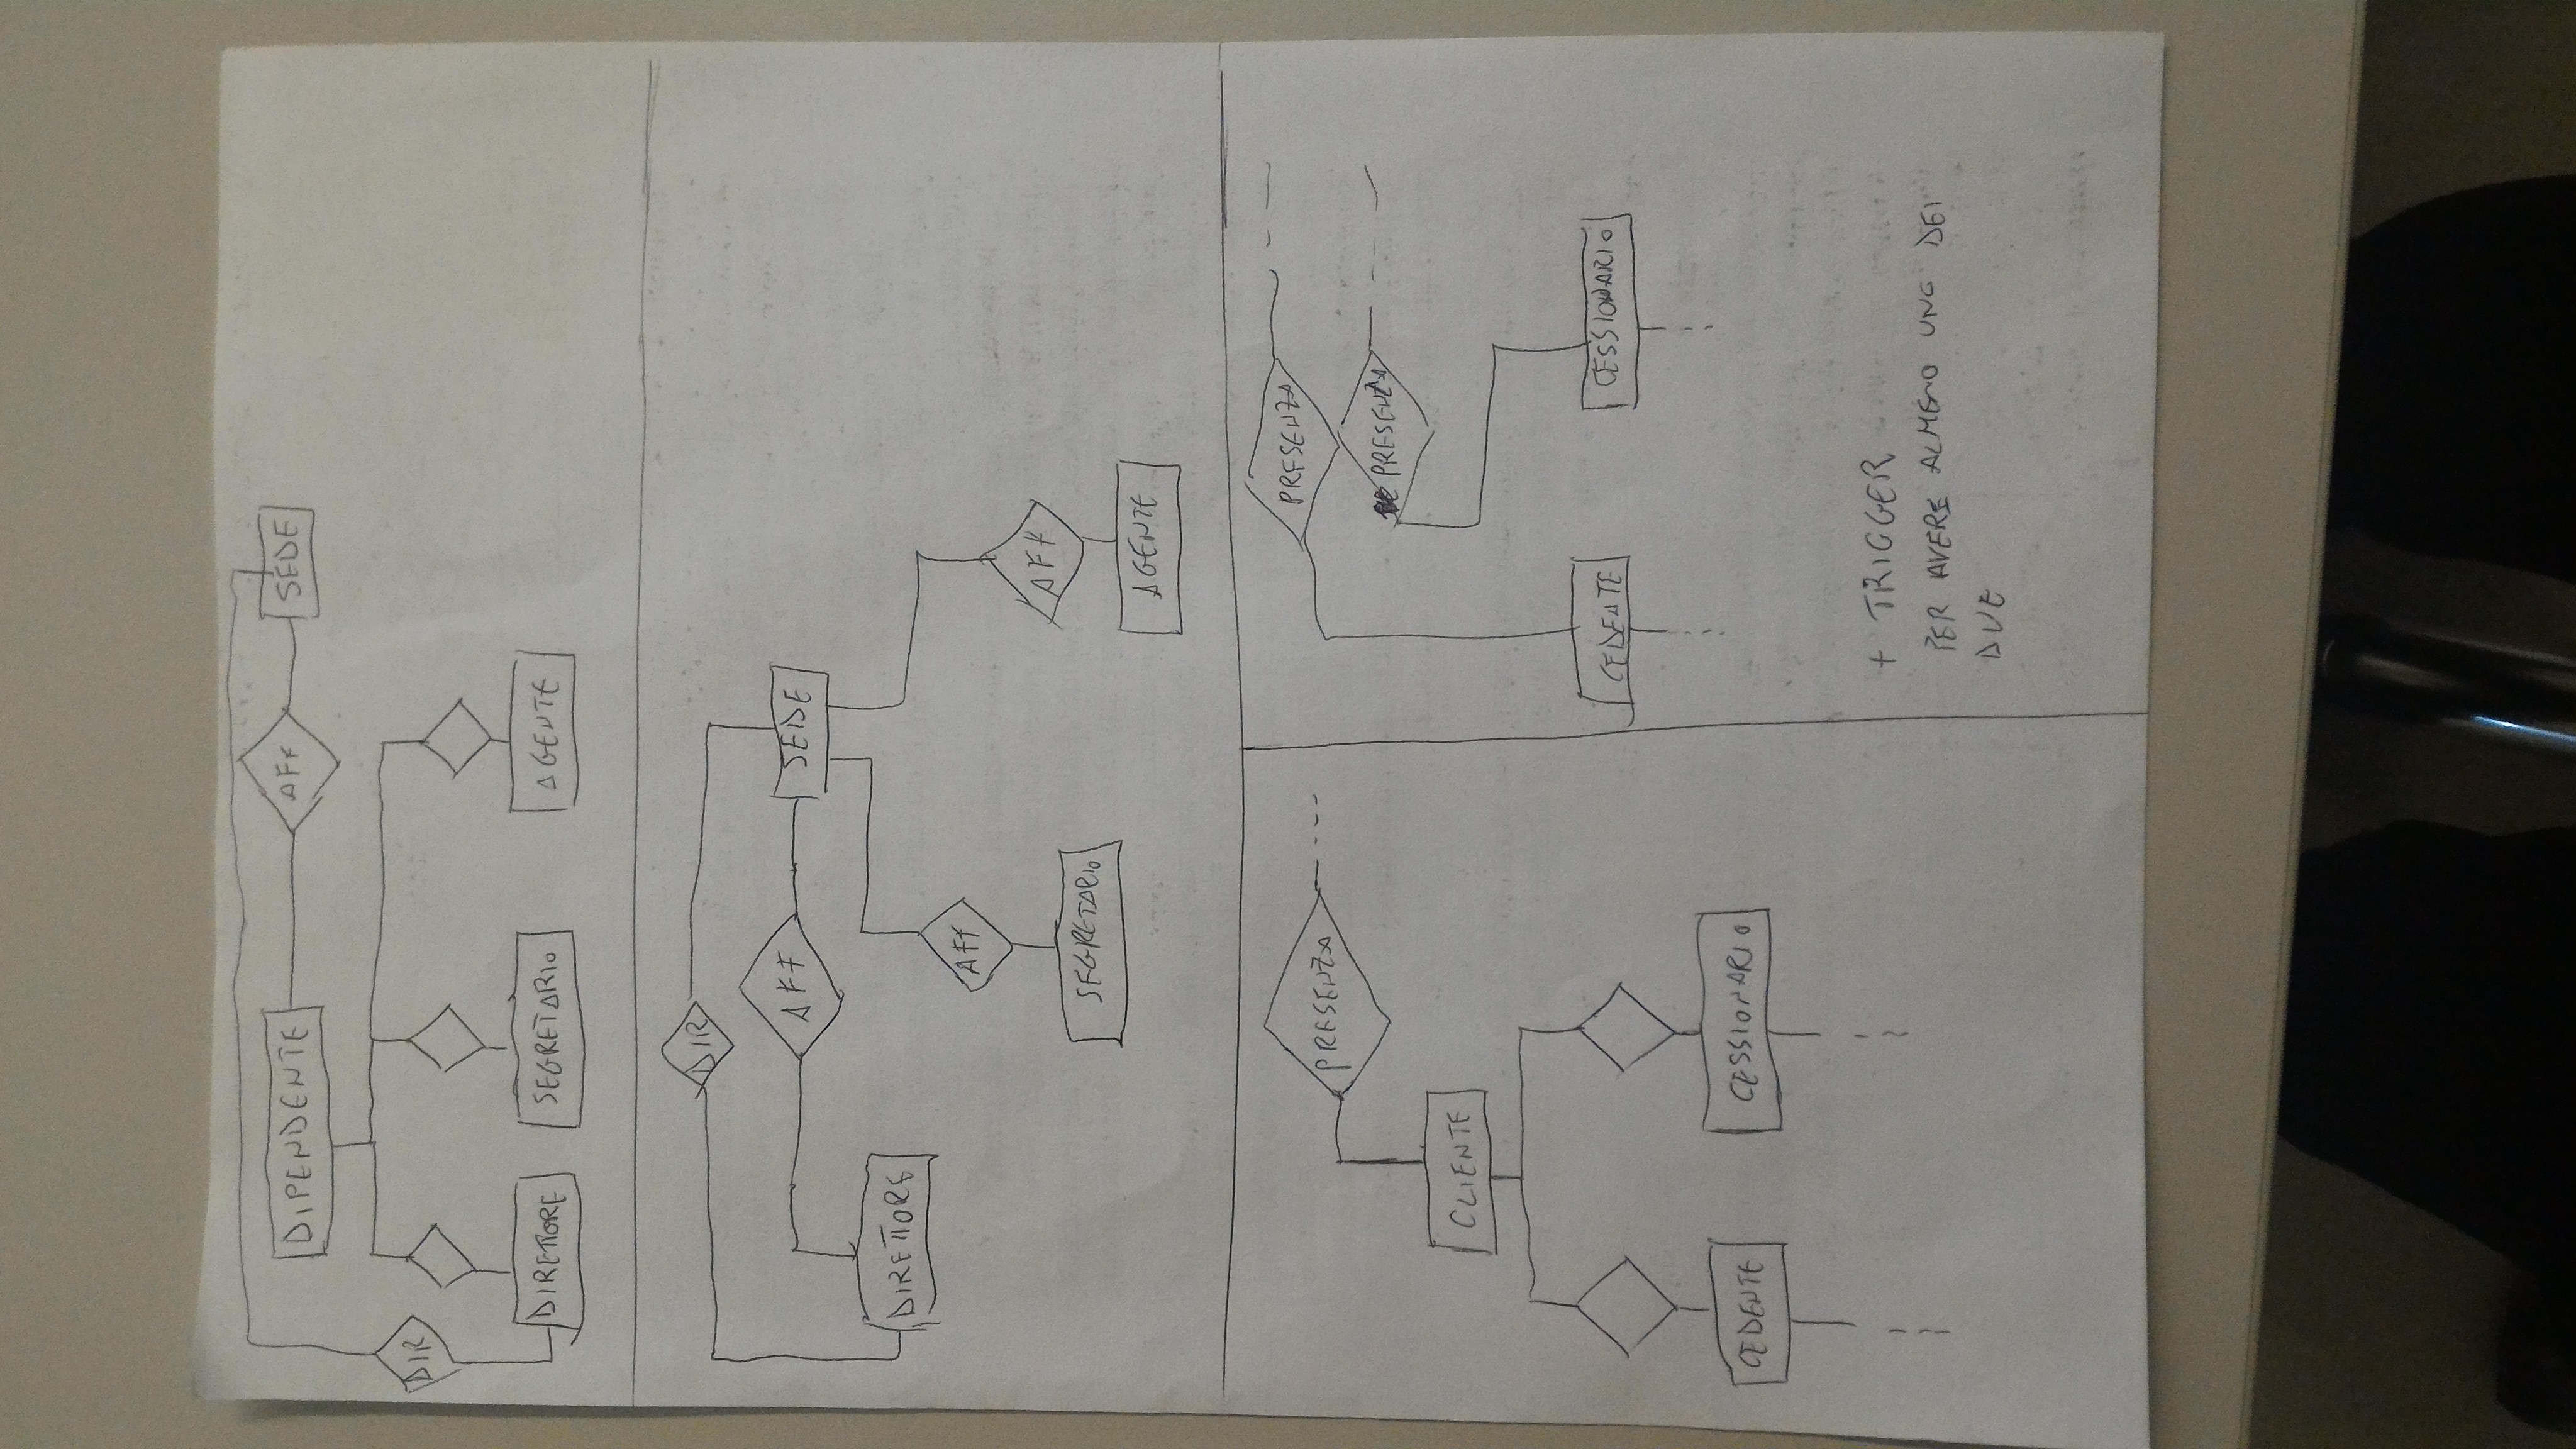 DIPENDENTE
AFF
SEDE
DIR
DIRETTORE
SEGRETARIO
AGENTE
DIR
AFF
SEDE
DIRETTORE
AFF
AFF
SEGRETARIO
AGENTE
PRESENZA
CLIENTE
CEDENTE
CESSIONARIO
PRESENZA
PRESENZA
CEDENTE
CESSIONARIO
+ TRIGGER
PER AVERE ALMENO UNO DEI
DUE